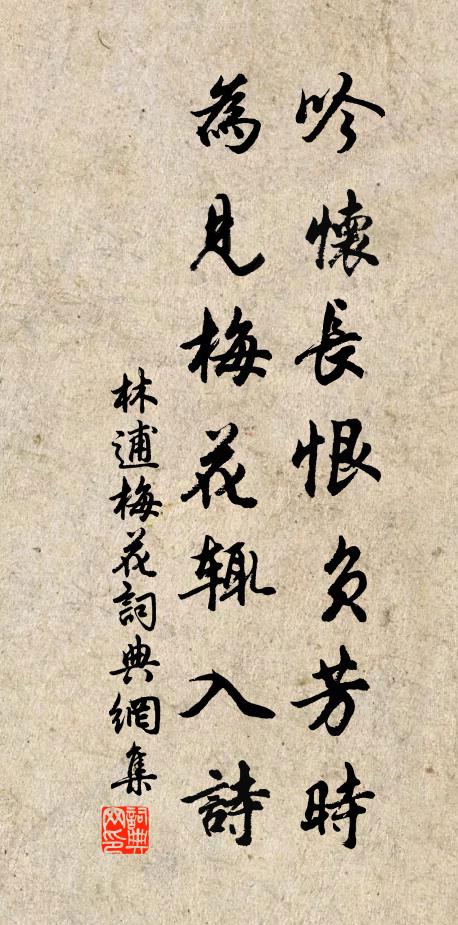 吟懷長恨負芳時
為見梅花輒入詩
林逋梅花詞典網集
詞典
网印